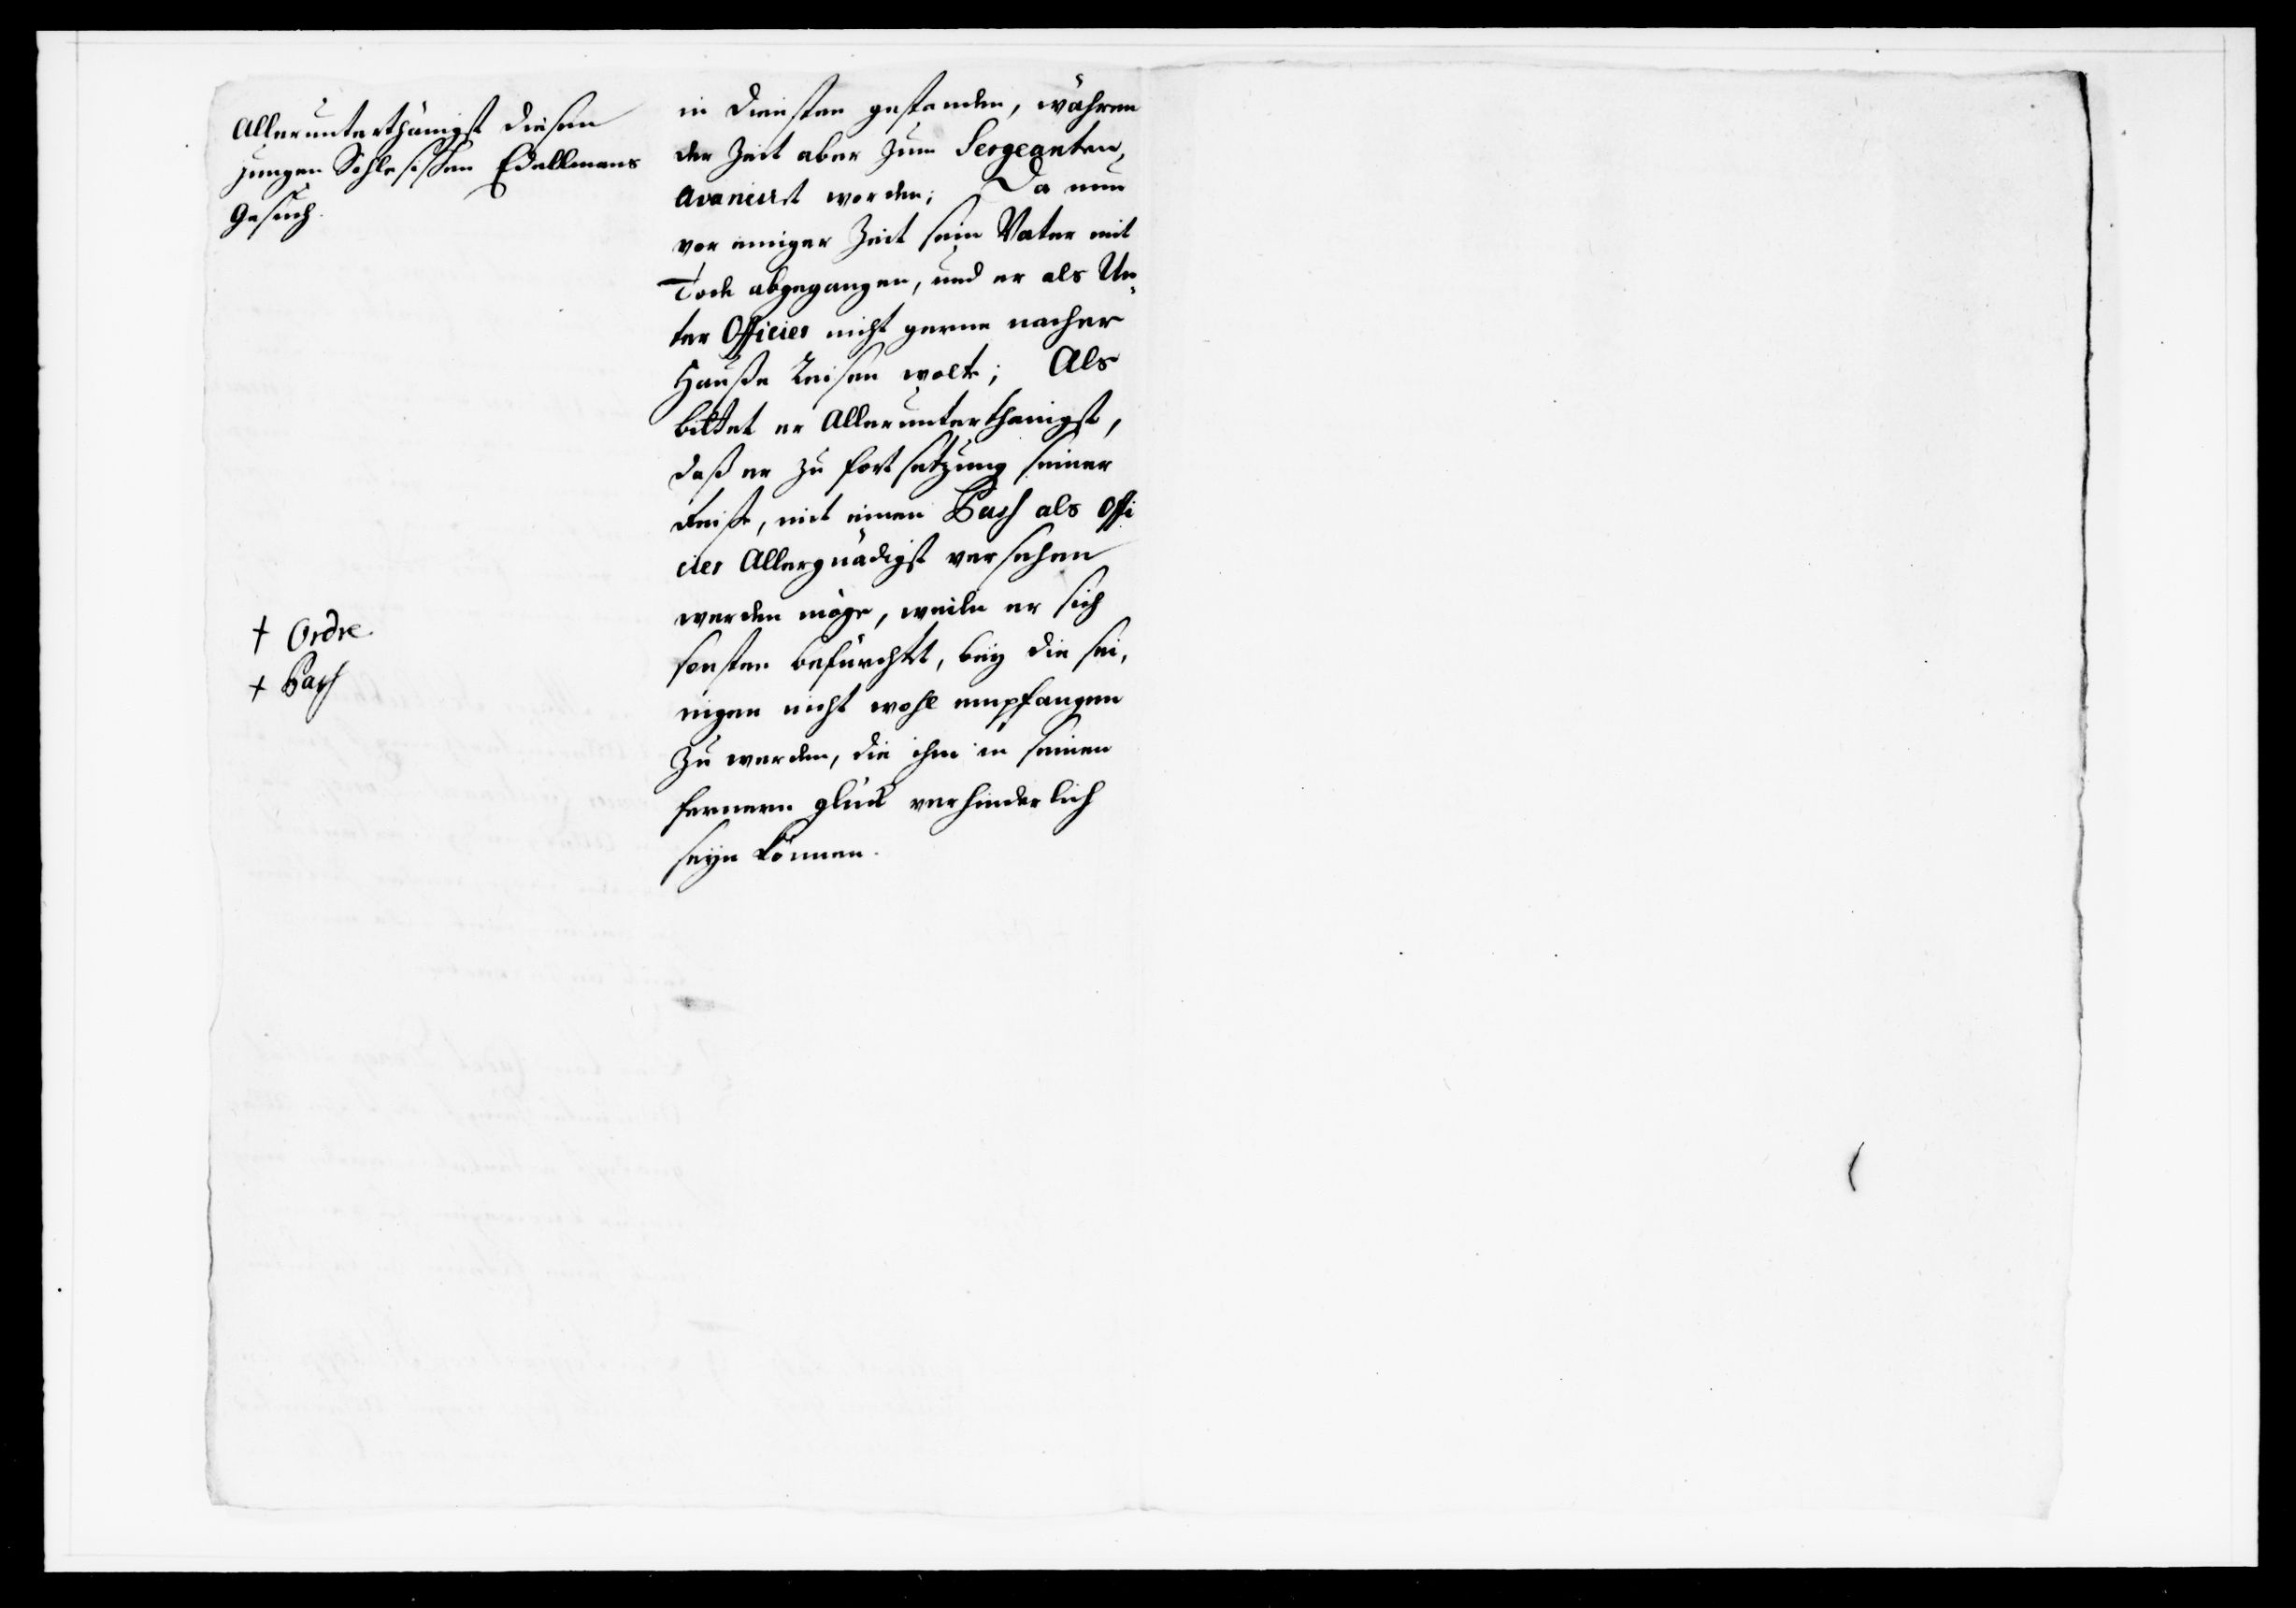 Allerunterthänigst diesen
jungen Schlesischen Edellmans
Gesuch.
† Ordre
† Pass
in diensten gestanden, während
der Zeit aber zum Sergeanten,
avanciert worden; Da nun
vor einiger Zeit sein Vater mit
Tode abgegangen, und er als Un„
ter Officier nicht gerne nacher
Hauße reisen wolte; Als
bittet er Allerunterthänigst,
daß er zu fortsetzung seiner
Reise, mit einen Pass als Offi
cier Allergnädigst versehen
werden möge, weile er sich
sonsten befürchtet, bey die sei,
nigen nicht wohl empfangen
zu werden, die ihm in seinen
fernern glück verhinderlich
seyn können.